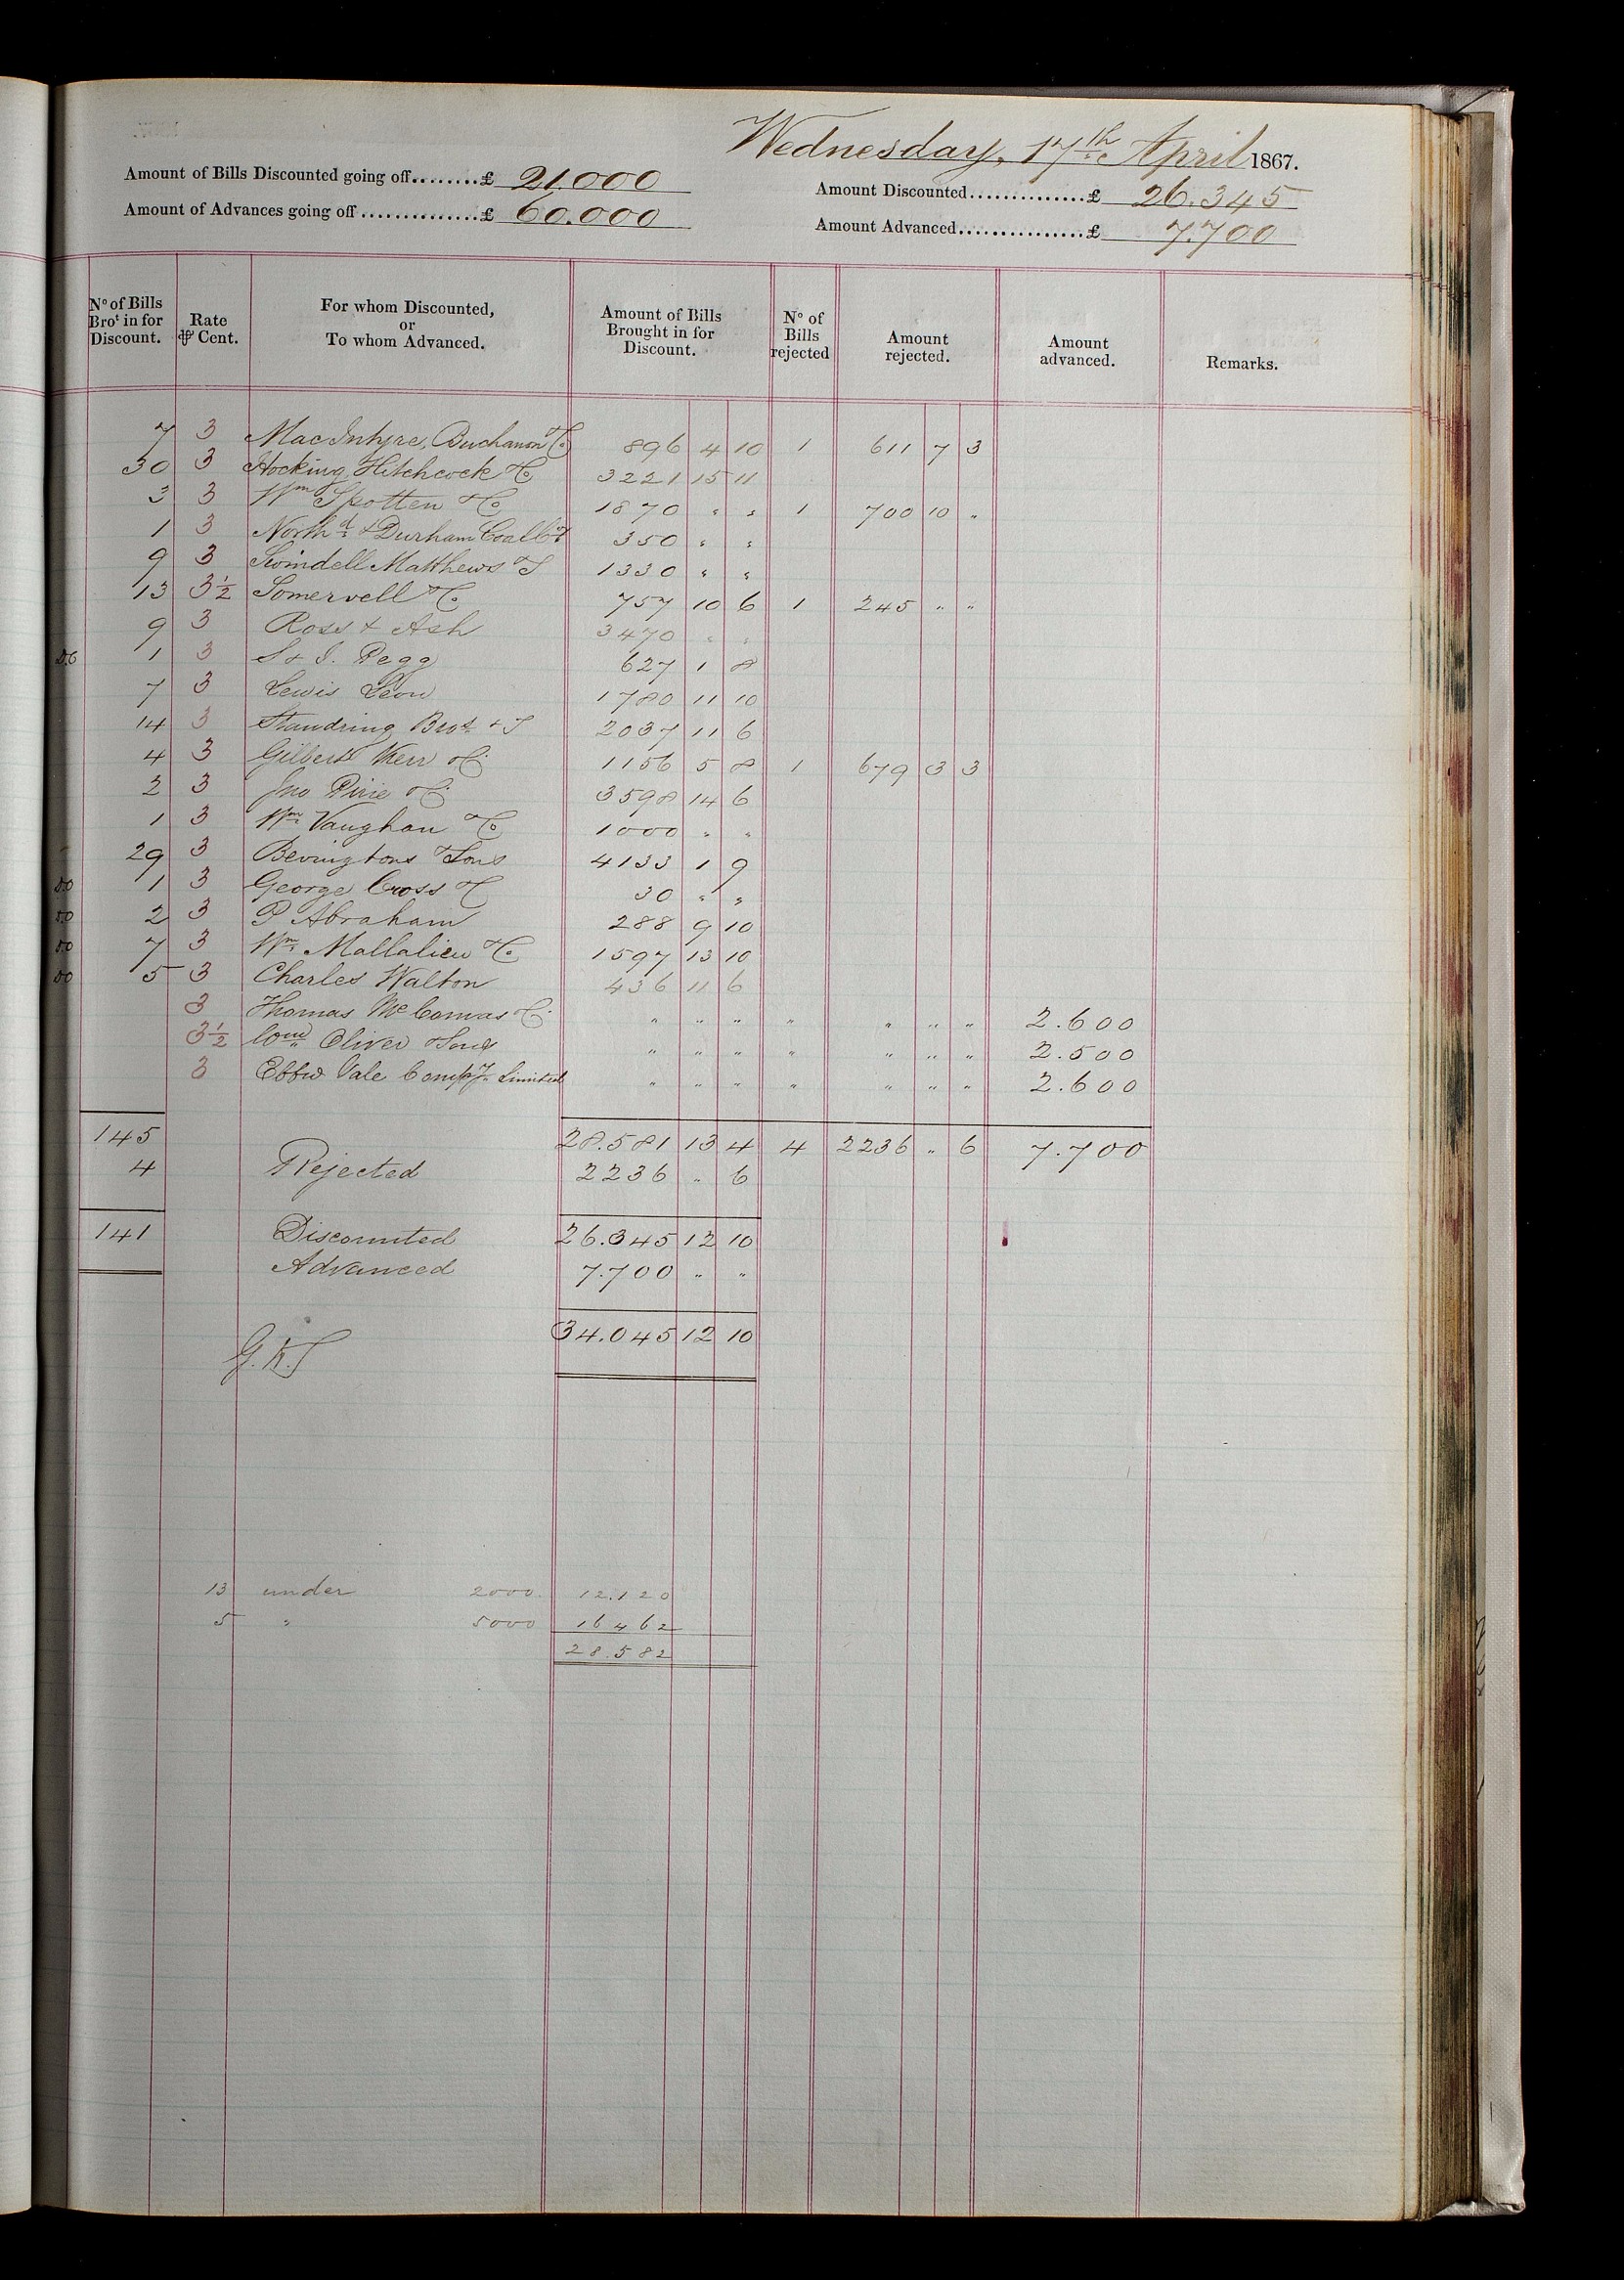 Wednesday, 17th April 1867.
Amount of Bills Discounted going off........£ 21.000
Amount Discounted...............£ 26.345
Amount of Advances going off...............£ 60.000
Amount Advanced.................£ 7.700
No of Bills Brot in for Discount. | Rate ⅌ Cent. | For whom Discounted, or To whom Advanced. | Amount of Bills Brought in for Discount. | No of Bills rejected | Amount rejected. | Amount advanced. | Remarks.
7 3 MacIntyre, Buchanan & Co 896 4 10 1 611 7 3
30 3 Hocking Hitchcock & Co 3221 15 11
3 3 Wm Spotten & Co 1870 " " 1 700 10 "
1 3 Northd & Durham Coal Co 350 " "
9 3 Swindell Matthews & 1330 " "
13 3½ Somervell & Co 757 10 6 1 245 " "
9 3 Ross & Ash 3470 " "
1 3 S & I. Pegg 627 1 8
7 3 Lewis Leon 1780 11 10
14 3 Standring Bros & 2037 11 6
4 3 Gilbert Kerr & Co 1156 5 8 1 679 3 3
2 3 Jno Pirie & Co 3598 14 6
1 3 Wm Vaughan & Co 1000 " "
29 3 Bevingtons & Sons 4133 1 9
Do 1 3 George Cross & Co 30 " "
Do 2 3 P Abraham 288 9 10
Do 7 3 Wm Mallalieu & Co 1597 13 10
Do 5 3 Charles Walton 436 11 6
3 Thomas McComas & Co " " " " " " " 2.600
3½ Edwd Oliver & Sons " " " " " " " 2.500
3 Ebbw Vale Compy. Limited " " " " " " " 2.600
145 28.581 13 4 4 2236 " 6 7.700
4 Rejected 2236 " 6
141 Discounted 26.345 12 10
Advanced 7.700 " "
34.045 12 10
G.K.S
13 under 2000 12.120
5 " 5000 16462
28.582